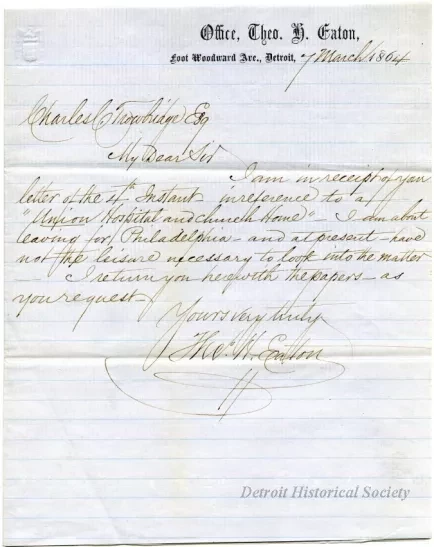 Office, Theo. H. Eaton,
Foot Woodward Ave., Detroit, 7 March 1864
Charles C Trowbridge Esq
My Dear Sir
I am in receipt of your
letter of the 4th Instant in reference to a
"Union Hospital and Church Home" - I am about
leaving for Philadelphia - and at present - have
not the leisure necessary to look into the matter
- I return you herewith the papers - as
you request
Yours very truly
Theo. H. Eaton
Detroit Historical Society